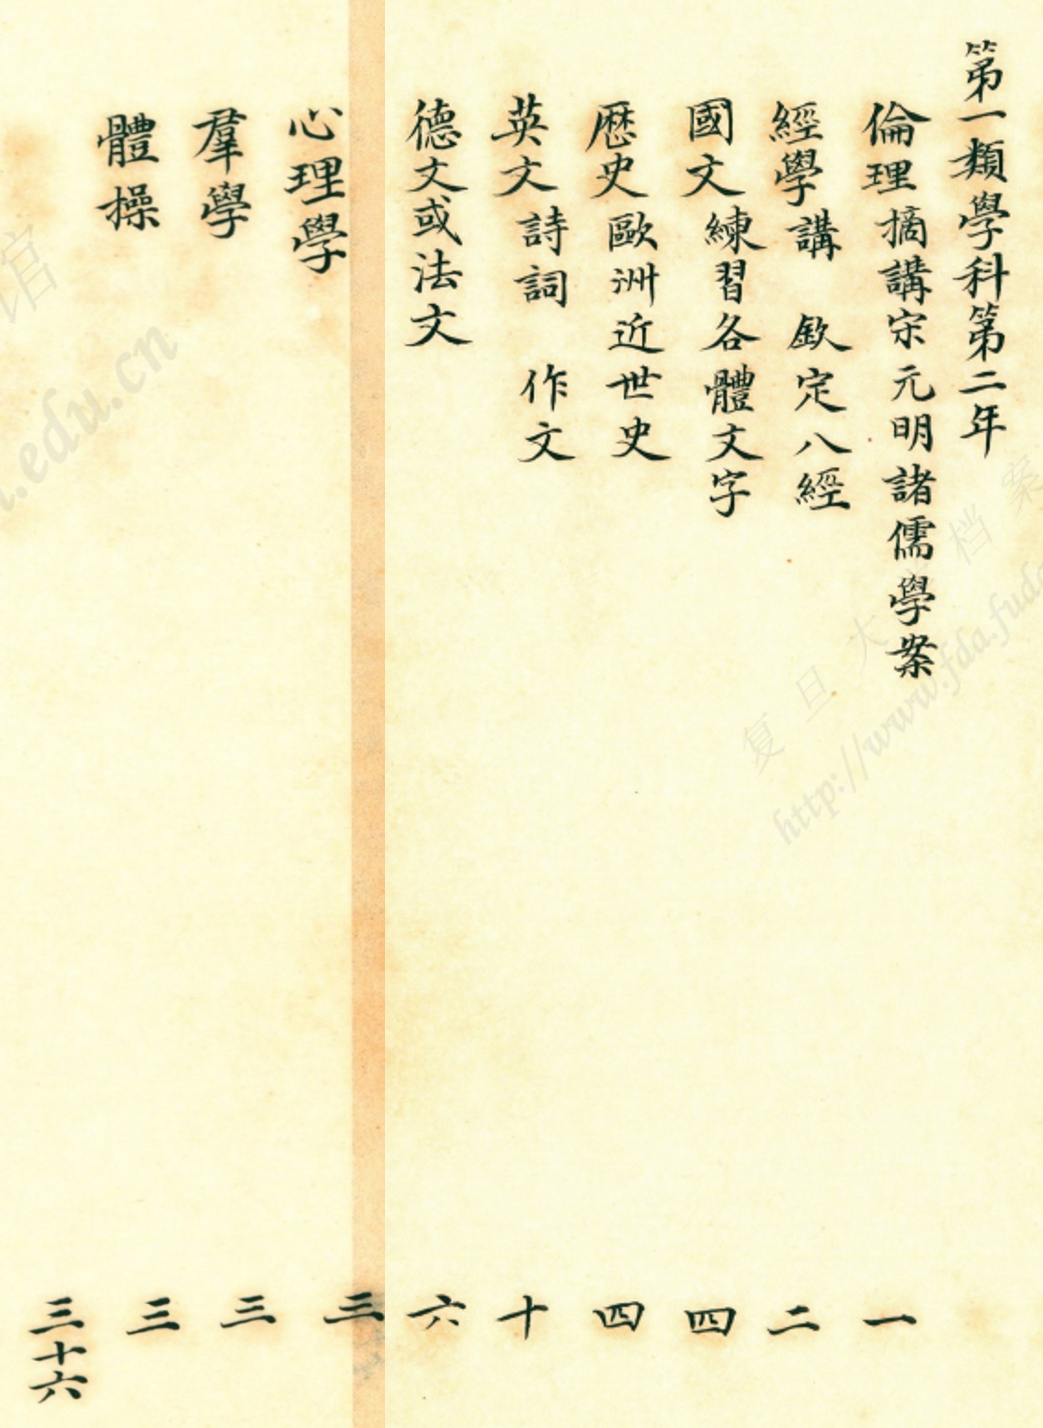 第一類學科第二年
倫理 摘講宋元明諸儒學案 一
經學 講 欽定八經 二
國文 練習各體文字 四
歷史 歐洲近世史 四
英文 詩詞 作文 十
德文或法文 六
心理學 三
羣學 三
體操 三
三十六
复旦大 档案
http://www.fda.fuda
馆
.edu.cn